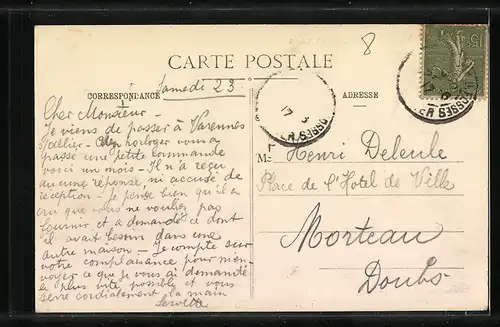 CARTE POSTALE
8
15
CORRESPONDANCE
ADRESSE
Samedi 23
Cher Monsieur -
Je viens de passer à Varennes
s/allier - horloger vous a
passé une petite commande
voici un mois - Il n'a reçu
aucune réponse, ni accusé de
réception - Je pense bien qu'il a
cru que vous ne vouliez pas
fournir et a demandé ce dont
il avait besoin dans une
autre maison - Je compte sur
votre complaisance pour m'en-
voyer ce que je vous ai demandé
le plus vite possible et vous
serre cordialement la main
17
M. Henri Deleule
Place de l'Hotel de Ville
Morteau
Doubs